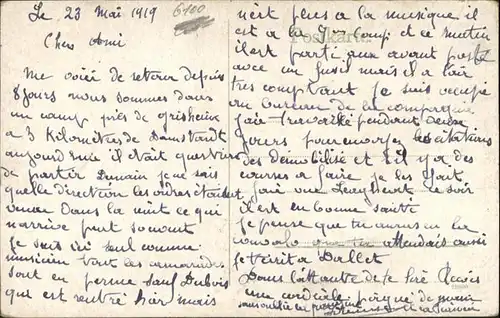 Le 23 Mai 1919
6400
Cher Ami
Me voici de retour depuis
8 jours nous sommes dans
un camp près de Grisheim
a 3 Kilomètres de Damstardt
aujourd'huie il était question
de partir Demain je ne sais
quelle direction les ordres étaient
venue Dans la nuit ce qui
narrive pas souvent
Je suis ici seul comme
musicien tout les camarades
sont en perme sauf Dubois
qui est rentré hier mais
nest plus a la musique il
est a la Comp et ce matin
Postkarte
il est parti aux avant poste
avec un fusil mais il a l'air
tres comptant Je suis occupé
au Bureau de la compagnie
Jai travaillé pendant deux
Jours pour les citations
des démobilisé et s'il y a des
courses a faire je les fait
jai vue ce soir
il est en bonne santé
Je pense que tu auras eu la
attendais aussi
écrit a Dallet
Dans l'attente de te lire
une cordiale poignée de main